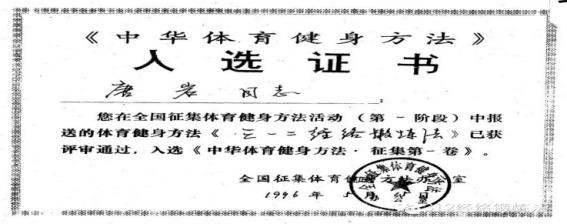 《中华体育健身方法》
入选证书
唐岩 同志
您在全国征集体育健身方法活动（第一阶段）中报
送的体育健身方法《三一二经络锻炼法》已获
评审通过，入选《中华体育健身方法·征集第一卷》。
全国征集体育健身方法办公室
1996年5月